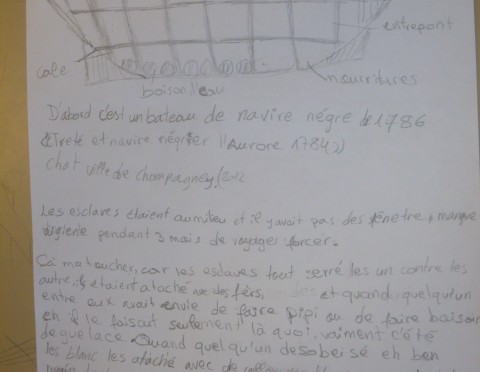 entrepont
cale
boison l'eau
nourritures
D'abord c'est un bateau de navire négre de 1786
«Treté et navire négrier l'Aurore 1784»
chat ville de champagney. 2012
Les esclaves étaient aumilieu et il y avait pas des fénetre, manque
digienie pendant 3 mais de voyages forcer.
Ça ma toucher, car les esclaves tout serré les un contre les
autre, ils etaient ataché avec des fèrs, et quand quelqu'un
entre eux avait envie de faire pipi ou de faire
eh il le faisait seulement là quoi, vaiment c'été
deguelace. Quand quelqu'un desobeisé eh ben
les blanc les ataché avec de